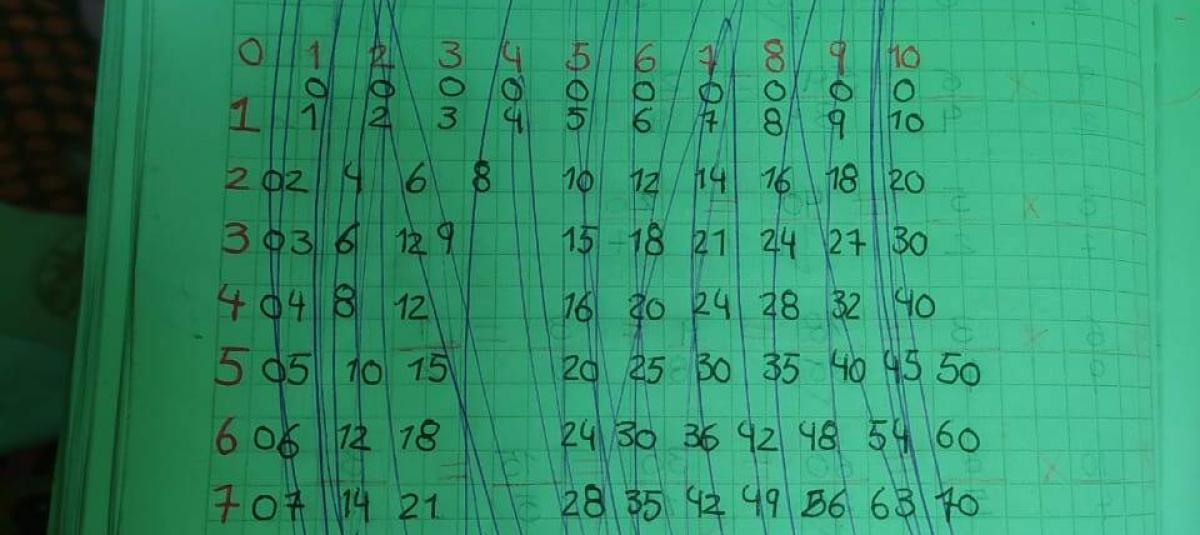 0 1 2 3 4 5 6 7 8 9 10
0 0 0 0 0 0 0 0 0 0
1 1 2 3 4 5 6 7 8 9 10
2 02 4 6 8 10 12 14 16 18 20
3 03 6 12 9 15 18 21 24 27 30
4 04 8 12 16 20 24 28 32 40
5 05 10 15 20 25 30 35 40 45 50
6 06 12 18 24 30 36 42 48 54 60
7 07 14 21 28 35 42 49 56 63 70